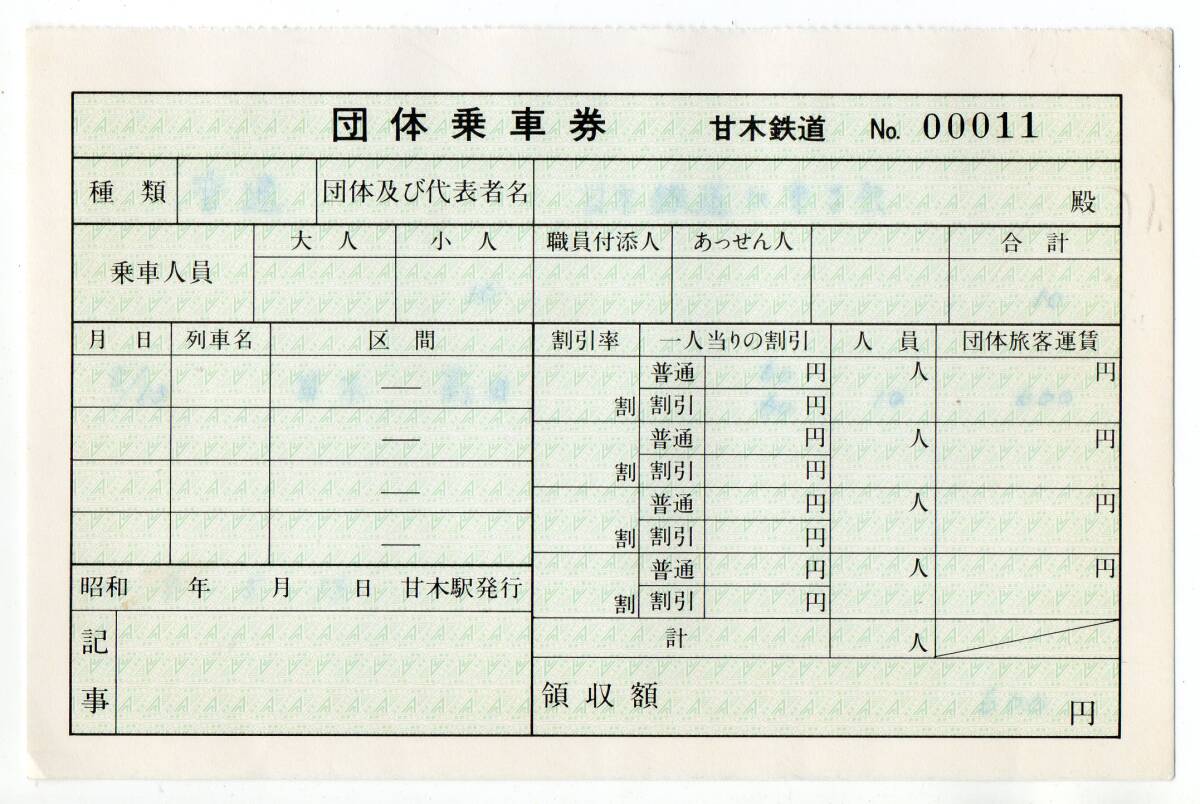 団体乗車券 甘木鉄道 No. 00011
種類 団体及び代表者名 殿
乗車人員 大人 小人 職員付添人 あっせん人 合計
10 10
月日 列車名 区間 割引率 一人当りの割引 人員 団体旅客運賃
― 普通 円 人 円
割 割引 60 円 10 600
― 普通 円 人 円
割 割引 円
― 普通 円 人 円
割 割引 円
― 普通 円 人 円
割 割引 円
昭和 年 月 日 甘木駅発行
計 人
記事
領収額 600 円